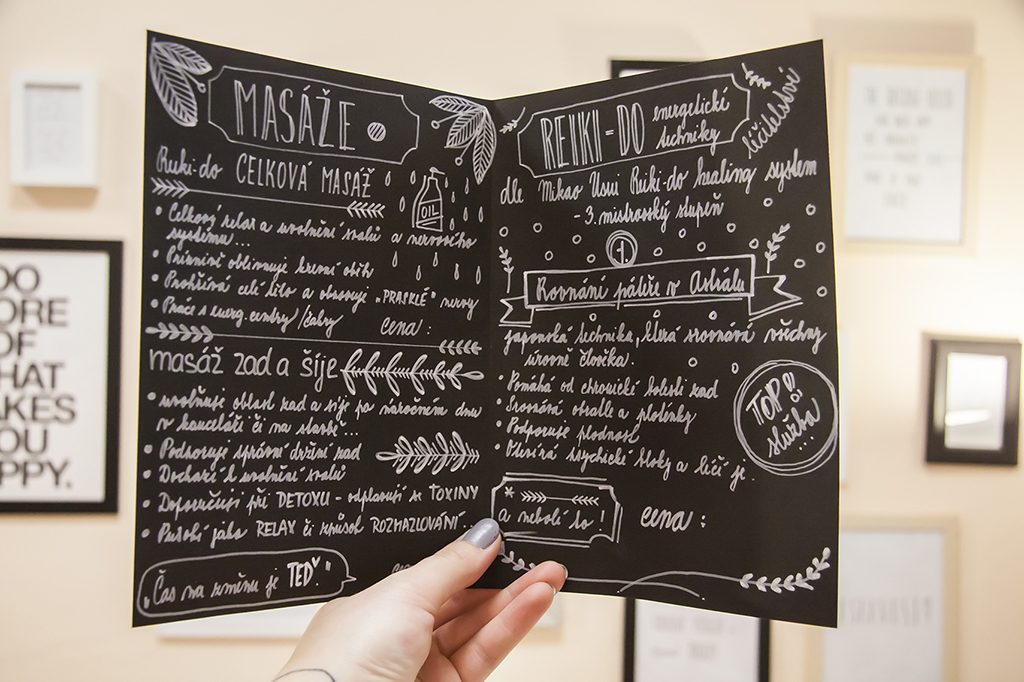 MASÁŽE
Reiki-do CELKOVÁ MASÁŽ
OIL
• Celkový relax a uvolnění svalů a nervového
systému...
• Příznivě ovlivňuje krevní oběh
• Prohřívá celé tělo a obnovuje „PRASKLÉ" nervy
• Práce s energ. centry/čakry
cena:
masáž zad a šíje
• uvolňuje oblast zad a šíje po náročném dnu
v kanceláři či na stavbě...
• Podporuje správné držení zad
• Dochází k uvolnění svalů
• Doporučuji při DETOXU - odplavují se TOXINY
• Působí jako RELAX či způsob ROZMAZLOVÁNÍ...
„Čas na změnu je TEĎ."
REIKI-DO energetické
techniky
léčitelství
dle Mikao Usui Reiki-do healing system
- 3. mistrovský stupeň
1.
Rovnání páteře v Astrálu
japonská technika, která srovnává všechny
úrovně člověka.
• Pomáhá od chronické bolesti zad
• Srovnává obratle a plotýnky
• Podporuje plodnost
• psychické bloky a léčí je.
TOP
služba...
* a nebolí to!
cena:
DO
ORE
OF
HAT
AKES
YOU
PPY.